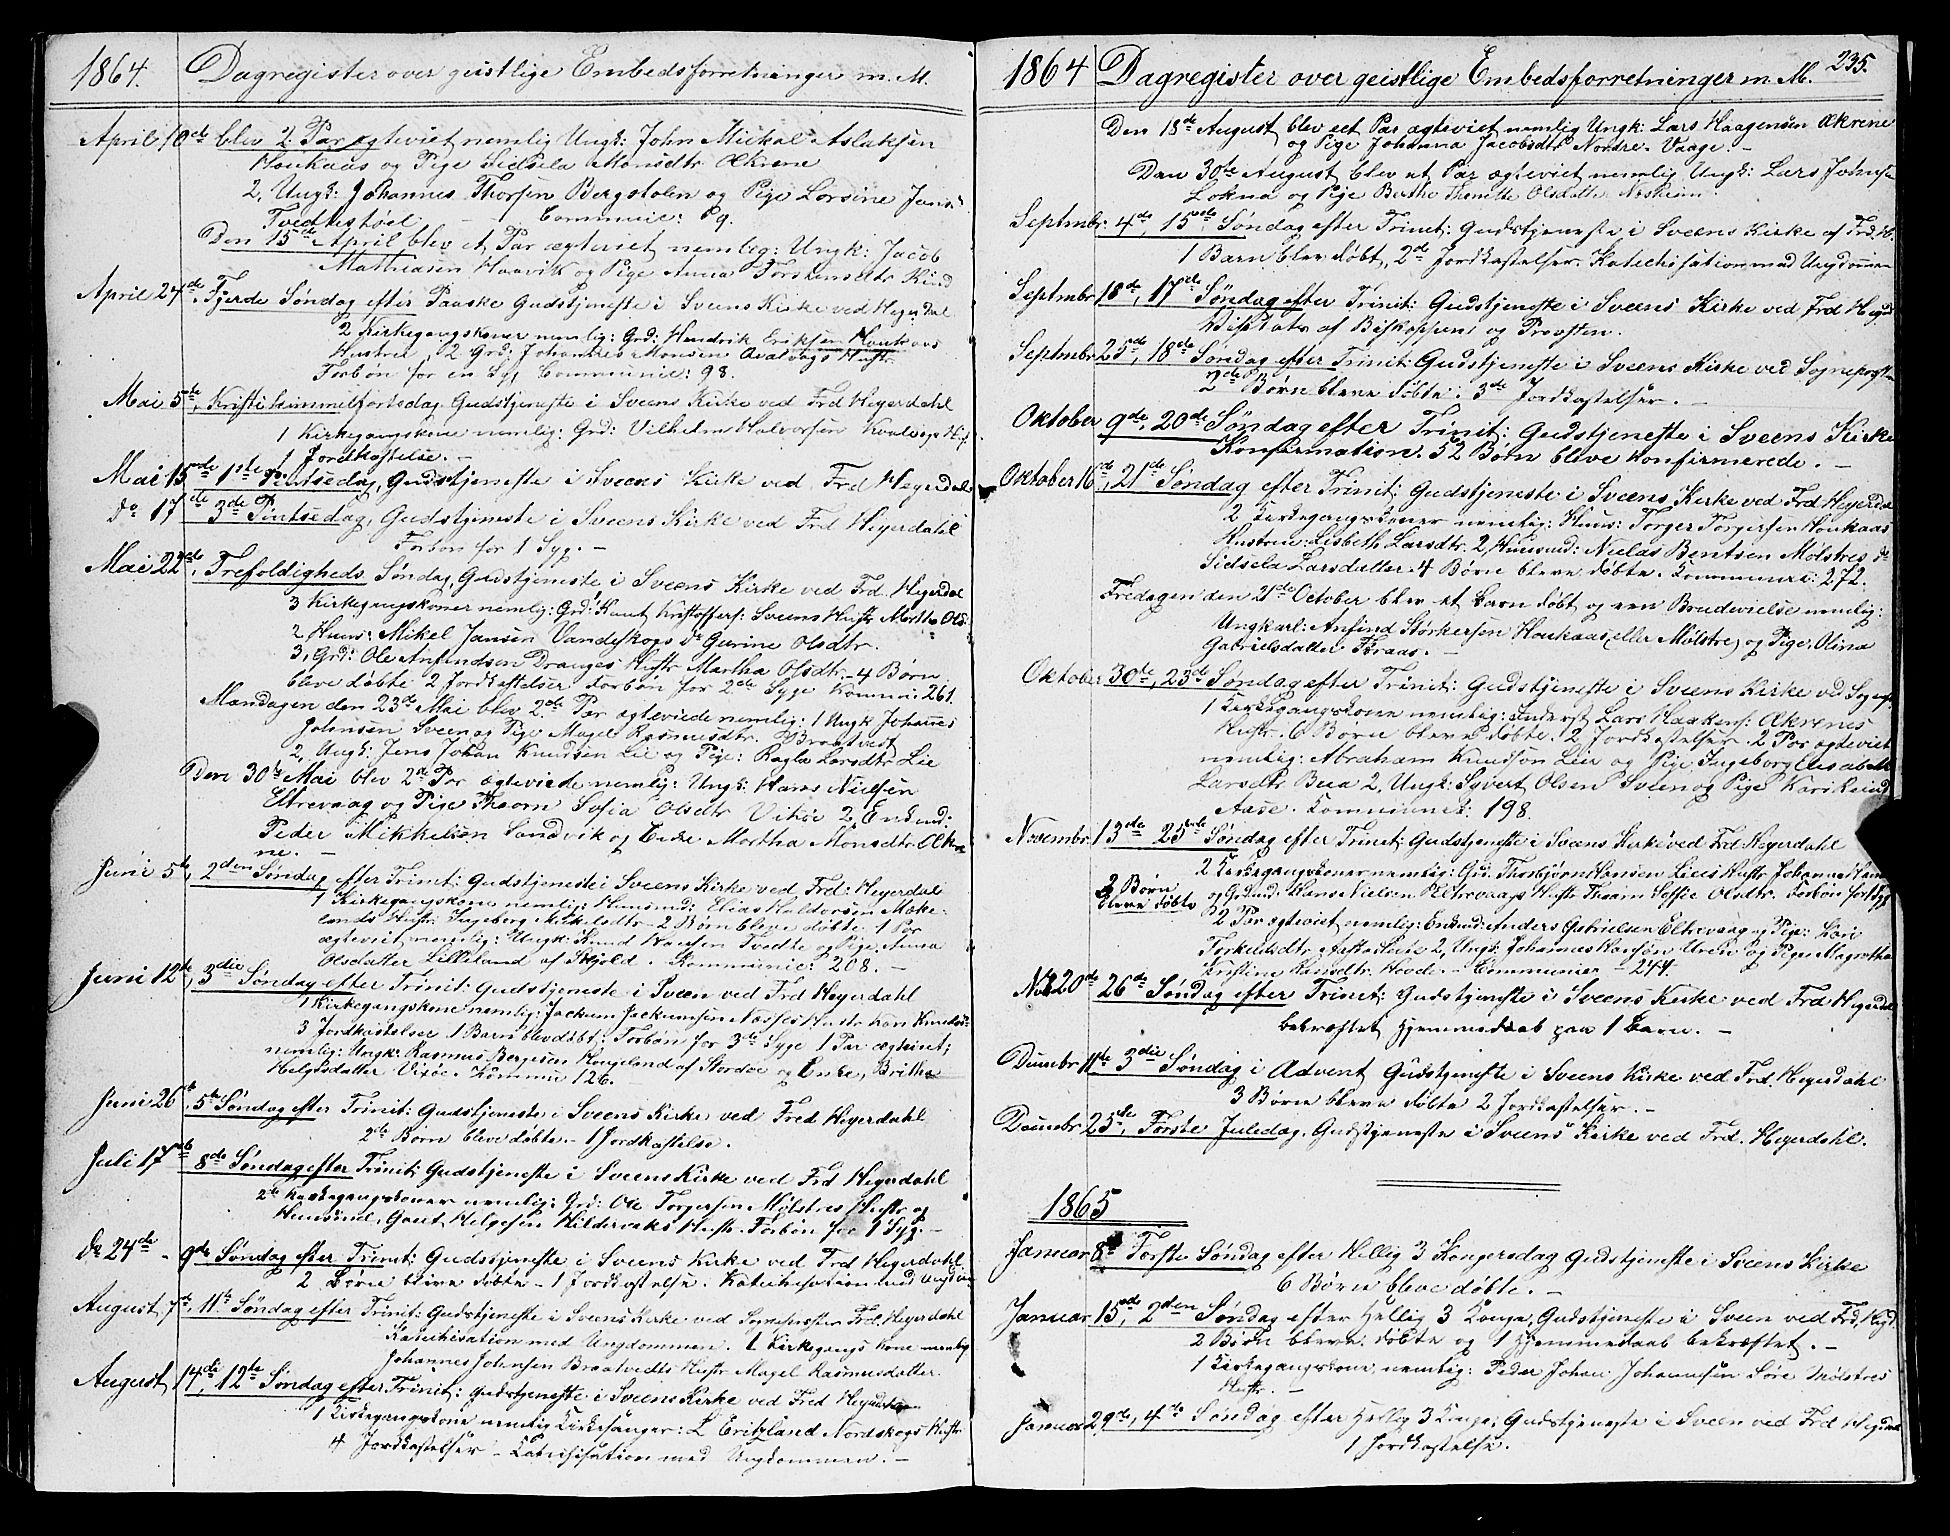 1864. Dagregister over geistlige Embedsforretninger m. M.
April 10de blev 2 Par ægteviet nemlig Ungk: John Mickal Aslaksen
Houkaas og Pige Sidsela Monsdtr Økrene
2, Ungk: Johannes Thorsen Bergstolen og Pige Lorsine Jens
Tvedtestøel. Communic: 89.
Den 15de April blev et Par ægteviet nemlig: Ungk: Jacob
Mathiasen Haavik og Pige Anna
April 24de, Fjerde Søndag efter Paaske Gudstjeneste i Sveens Kirke ved Heyerdal
2 Kirkegangskoner nemlig: Grd: Hendrik Eriksen
Hustru, 2 Grd: Johannes Monsen Qvalvogs Hustr
Forbøn for en Syg Communic: 98.
Mai 5te, Kristi himmelfartsdag Gudstjeneste i Sveens Kirke ved Frd Heyerdahl
1 Kirkegangskone nemlig: Grd: Vilhelm Halvorsen Kvalvogs
1 Jordkastelse. –
Mai 15nde 1ste Pintsedag, Gudstjeneste i Sveens Kirke ved Frd Heyerdal
do 17de 3de Pintsedag, Gudstjeneste i Sveens Kirke ved Frd Heyerdahl
Forbøn for 1 Syg. –
Mai 22de, Trefoldigheds Søndag, Gudstjeneste i Sveens Kirke ved Frd. Heyerdal
3 Kirkegangskoner nemlig: Grd: Knut Kristoffers: Sveens Hustr Marthe Ols
2, Huus: Mikel Jansen Vandeskogs do Gurine Olsdtr.
3, Grd: Ole Anfindsen Dranges Hustr Martha Olsdtr. – 4 Børn
bleve døbte 2 Jordkastelser Forbøn for 2de Syge Kommu: 261.
Mandagen den 23de Mai blev 2de Par ægteviede nemlig: 1 Ungk Johannes
Johnsen Sveen og Pige Magel Rasmusdtr. Braatvedt
2, Ungk: Jens Johan Knudsen Lie og Pige: Ragla Larsdtr Lie
Den 30te Mai blev 2de Par ægteviede nemlig: Ungk: Hans Nielsen
Eltrevaag og Pige Thoorn Sofia Olsdtr Vikse 2, Enkemd:
Peder Mikkelsen Sandvik og Enke Martha Monsdtr Økre
ne. –
Juni 5te, 2den Søndag efter Trinit: Gudstjeneste i Sveens Kirke ved Frd: Heyerdal
1 Kirkegangskone nemlig: Huusmd: Elias Haldorsen Møke-
lands Hustr: Ingeborg Mikelsdtr – 2 Børn bleve døbte 1 Par
ægteviet nemlig: Ungk: Knud Hansen Tvedte og Pige Anna
Olsdatter Lilleland af Skjold. – Kommunic: 208. –
Juni 12te, 3die Søndag efter Trinit: Gudstjeneste i Sveen ved Frd Heyerdahl
1 Kirkegangskone nemlig: Jackum Jackumsen Næsses Hustr Kari Knuds
3 Jordkastelser 1 Barn blev døbt: Forbøn for 3de Syge 1 Par ægteviet;
nemlig: Ungk: Rasmus Bergesen Hougland af Stordøe og Enke, Britha
Helgesdatter Vixøe. – Kommu 126.
Juni 26te, 5te Søndag efter Trinit: Gudstjeneste i Sveens Kirke ved Fred Heyerdahl
2de Børn bleve døbte – 1 Jordkastelse.
Juli 17de 8de Søndag efter Trinit: Gudstjeneste i Sveens Kirke ved Frd Heyerdahl
2de Kirkegangskoner nemlig: Grd: Ole Torgersen Mølstres Hustr og
Huusmd, Gaut Helgesen Hildervaks Hustr. Forbøn for 1 Syg. –
do 24de – 9de Søndag efter Trinit: Gudstjeneste i Sveens Kirke ved Frd Heyerdahl
2 Børn bleve døbte – 1 Jordkastelse. Katechisation med Ungdom
August 7de, 11te Søndag efter Trinit: Gudstjeneste i Sveens Kirke ved Sognepresten Frd. Heyerdahl
Katechisation med Ungdommen. 1 Kirkegangs Kone nemlig
Johannes Johnsen Braatvedts Hustr Magel Rasmusdatter.
August 14de, 12te Søndag efter Trinit: Gudstjeneste i Sveens Kirke ved Frd Heyerdahl
1 Kirkegangskone nemlig Kirkesanger: L Eritzland Nordskogs Hustr
4 Jordkastelser – Katechisation med Ungdommen. –
1864 Dagregister over geistlige Embedsforretninger m. M. 235.
Den 18de August blev eet Par ægteviet nemlig Ungk: Lars Haagensen Økrene
og Pige Johanna Jacobsdtr Nordre-Vaage. –
Den 30te August blev et Par ægteviet nemlig Ungk: Lars Johns
Lokna og Pige Berthe Olsdatte Næsheim.
Septmbr. 4de, 15nde Søndag efter Trinit: Gudstjeneste i Sveens Kirke af Frd. H.
1 Barn blev døbt, 2de Jordkastelser. Katechisation med Ungdommen
Septmbr 18de, 17de Søndag efter Trinit: Gudstjeneste i Sveens Kirke ved Frd Heyerd
Visitats af Biskoppen og Provsten.
Septmbr 25de, 18de Søndag efter Trinit: Gudstjeneste i Sveens Kirke ved Sognepræst
2de Børn bleve døbte. 3de Jordkastelser. –
Oktober 9de, 20de Søndag efter Trinit: Gudstjeneste i Sveens Kirke
Konfirmation. 52 Børn bleve konfirmerede. –
Oktober 16de, 21de Søndag efter Trinit: Gudstjeneste i Sveens Kirke ved Frd Heyerdal
2 Kirkegangskoner nemlig: Huus: Torger Torgersen Houkaas
Hustrue: Lisbeth Larsdtr. 2, Huusmd: Nielas Bentsen Mølstres do
Sidsela Larsdatter. 4 Børn bleve døbte. Kommunic: 272.
Fredagen den 21de October blev et barn døbt og een Brudevielse nemlig:
Ungkarl: Anfind Størkersen Houkaas (eller Mølstre) og Pige, Olina
Gabrielsdatter Fåraas. –
Oktober 30te, 23de Søndag efter Trinit: Gudstjeneste i Sveens Kirke ved Sogne
1 Kirkegangskone nemlig: Inderst Lars Haakens: Økrenes
Hustr. 6 Børn bleve døbte. 2 Jordkastelser. 2 Par ægteviet
nemlig: Abraham Knudsen Leir og Pige Ingeborg Elisabeth
Larsdtr Bua 2, Ungk: Syvert Olsen Sveen og Pige Kari
Aase. Kommunic: 198.
Novembr. 13de 25nde Søndag efter Trinit: Gudstjeneste i Sveens Kirke ved Frd Heyerdahl
2 Kirkegangskoner nemlig: Grd: Thorbjørn Hansen Liers Hustr Johanna
2 Børn og Grdmd: Hans Nielsen Eltrevaags Hustr Thoorn Soffie Olsdtr. Forbøn for 1 Syg
bleve døbte
2 Par ægteviet nemlig: Enkemd: Anders Gabrielsen Eltrevaag og Pige: Kari
Torkilsdtr 2, Ungk: Johannes Hansen Ureen og Pige Magretha
Kristine Hansdtr. Hovde. – Communic – 244.
Nvb 20de 26de Søndag efter Trinit: Gudstjeneste i Sveens Kirke ved Frd Heyerdal
bekræftet Hjemmedaab paa 1 Barn. –
Decmbr 11te 3die Søndag i Advent Gudstjeneste i Sveens Kirke ved Frd. Heyerdahl
3 Børn bleve døbte 2 Jordkastelser. –
Decmbr 25de, Første Juledag. Gudstjeneste i Sveens Kirke ved Frd. Heyerdahl.
1865
Januar 8de Første Søndag efter Hellig 3 Kongersdag Gudstjeneste i Sveens Kirke
6 Børn bleve døbte. –
Januar 15de, 2den Søndag efter Hellig 3 Konge, Gudstjeneste i Sveen ved Frd, Heyd.
2 Børn bleve døbte og 1 Hjemmedaab bekræftet. –
1 Kirkegangskone, nemlig: Peder Johan Johannesen Søre Mølstres
Hustr. –
Januar 29de, 4de Søndag efter Hellig 3 Konge, Gudstjeneste i Sveen ved Frd Heyerdal
1 Jordkastelse.